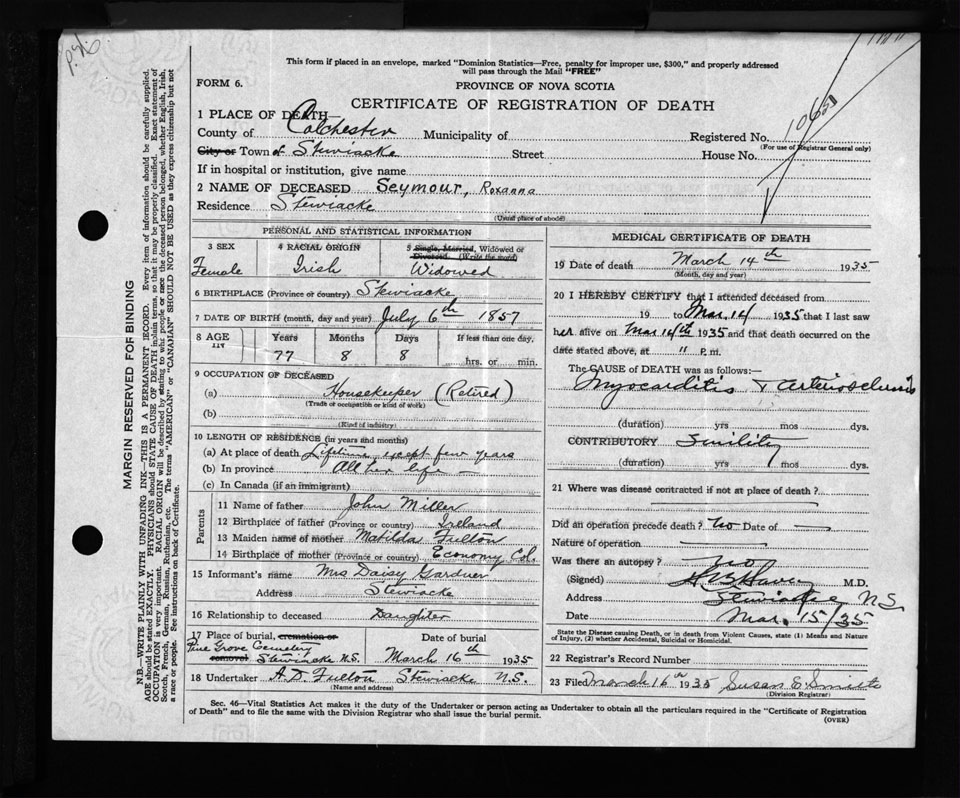 P. 96
This form if placed in an envelope, marked "Dominion Statistics—Free, penalty for improper use, $300," and properly addressed
will pass through the Mail "FREE"
FORM 6.
PROVINCE OF NOVA SCOTIA
CERTIFICATE OF REGISTRATION OF DEATH
1 PLACE OF DEATH—
County of Colchester Municipality of Registered No.
(For use of Registrar General only)
City or Town of Stewiacke Street House No.
If in hospital or institution, give name
2 NAME OF DECEASED Seymour, Roxanna
Residence Stewiacke
(Usual place of abode)
PERSONAL AND STATISTICAL INFORMATION
3 SEX 4 RACIAL ORIGIN 5 Single, Married, Widowed or
Divorced. (Write the word)
Female Irish Widowed
6 BIRTHPLACE (Province or country) Stewiacke
7 DATE OF BIRTH (month, day and year) July 6th 1857
8 AGE Years Months Days If less than one day,
77 8 8 hrs. or min.
9 OCCUPATION OF DECEASED
(a) Housekeeper (Retired)
(Trade or occupation or kind of work)
(b)
(Kind of industry)
10 LENGTH OF RESIDENCE (in years and months)
(a) At place of death Lifetime except few years
(b) In province All her life —
(c) In Canada (if an immigrant)
Parents
11 Name of father John Miller
12 Birthplace of father (Province or country) Ireland
13 Maiden name of mother Matilda Fulton
14 Birthplace of mother (Province or country) Economy Col.
15 Informant's name Mrs Daisy Gardner
Address Stewiacke
16 Relationship to deceased Daughter
17 Place of burial, cremation or Date of burial
Pine Grove Cemetery
removal Stewiacke N.S. March 16th 1935
18 Undertaker A. D. Fulton Stewiacke N.S.
(Name and address)
MEDICAL CERTIFICATE OF DEATH
19 Date of death March 14th 1935
(Month, day and year)
20 I HEREBY CERTIFY that I attended deceased from
19 to Mar. 14 1935 that I last saw
her alive on Mar 14th 1935 and that death occurred on the
date stated above, at 11 P.m.
The CAUSE OF DEATH was as follows:—
Myocarditis + arteriosclerosis
(duration) yrs mos dys.
CONTRIBUTORY Senility
(duration) yrs mos dys.
21 Where was disease contracted if not at place of death?
Did an operation precede death? No Date of
Nature of operation
Was there an autopsy? no
(Signed) M.D.
Address Stewiacke N.S.
Date Mar. 15/35
State the Disease causing Death, or in death from Violent Causes, state (1) Means and Nature
of Injury, (2) whether Accidental, Suicidal or Homicidal.
22 Registrar's Record Number
23 Filed March 16th 1935 Susan E Smith
(Division Registrar)
Sec. 46—Vital Statistics Act makes it the duty of the Undertaker or person acting as Undertaker to obtain all the particulars required in the "Certificate of Registration
of Death" and to file the same with the Division Registrar who shall issue the burial permit.
(OVER)
MARGIN RESERVED FOR BINDING
N.B.—WRITE PLAINLY WITH UNFADING INK—THIS IS A PERMANENT RECORD. Every item of information should be carefully supplied.
AGE should be stated EXACTLY. PHYSICIANS should STATE CAUSE OF DEATH in plain terms, so that it may be properly classified. Exact statement of
OCCUPATION is very important. RACIAL ORIGIN will be described by stating to what people or race the deceased person belonged, whether English, Irish,
Scotch, French, German, Russian, Ruthenian, etc. The terms "AMERICAN" or "CANADIAN" SHOULD NOT BE USED as they express citizenship but not
a race or people. See instructions on back of Certificate.